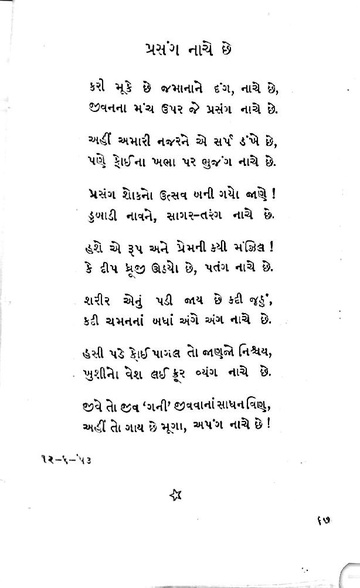 પ્રસંગ નાચે છે
કરી મૂકે છે જમાનાને દંગ, નાચે છે,
જીવનના મંચ ઉપર જે પ્રસંગ નાચે છે.
અહીં અમારી નજરને એ સર્પ ડંખે છે,
પણે કોઈના ખભા પર ભુજંગ નાચે છે.
પ્રસંગ શોકનો ઉત્સવ બની ગયો જાણે !
ડુબાડી નાવને, સાગર-તરંગ નાચે છે.
હશે એ રૂપ અને પ્રેમની કયી મંઝિલ !
કે દીપ ધ્રૂજી ઊઠ્યો છે, પતંગ નાચે છે.
શરીર એનું પડી જાય છે કદી જૂઠું,
કદી ચમનનાં બધાં અંગે અંગ નાચે છે.
હસી પડે કોઈ પાગલ તો જાણજો નિશ્ચય,
ખુશીનો વેશ લઈ ક્રૂર વ્યંગ નાચે છે.
જીવે તો જીવ ‘ગની’ જીવવાનાં સાધન વિણ,
અહીં તો ગાય છે મૂગા, અપંગ નાચે છે !
૧૨-૬-'૫૩
૬૭